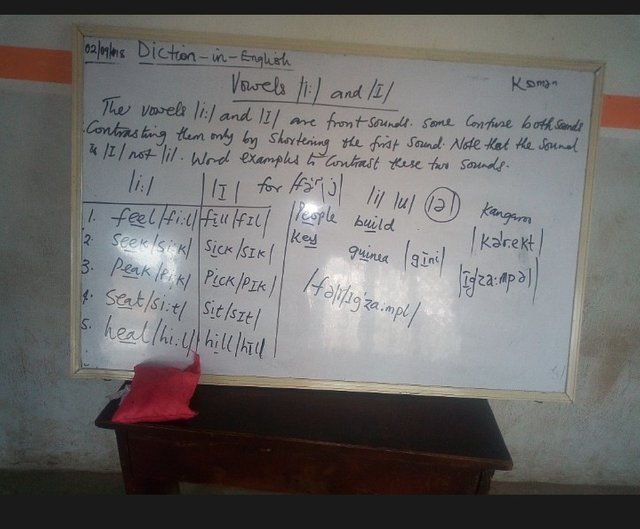 02/09/018 Diction-in-English
Vowels |i:| and |I|
The vowels |i:| and |I| are front sounds. Some confuse both sounds
Contrasting them only by shortening the first sound. Note that the sound
is |I| not |i|. Word examples to contrast these two sounds.
|i:| |I| for
|i| |u| |ə| Kangaroo
1. feel/fi:l/ fill/fIl/ People build |kərekt|
2. Seek/si:k/ Sick/sIk/ Key guinea |gini|
3. Peak/Pi:k/ Pick/PIk/
4. Seat/si:t/ Sit/sIt/
5. heal/hi:l/ hill/hIl/